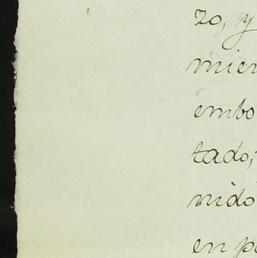 zo, y
mien
embo
tado;
nido
en p